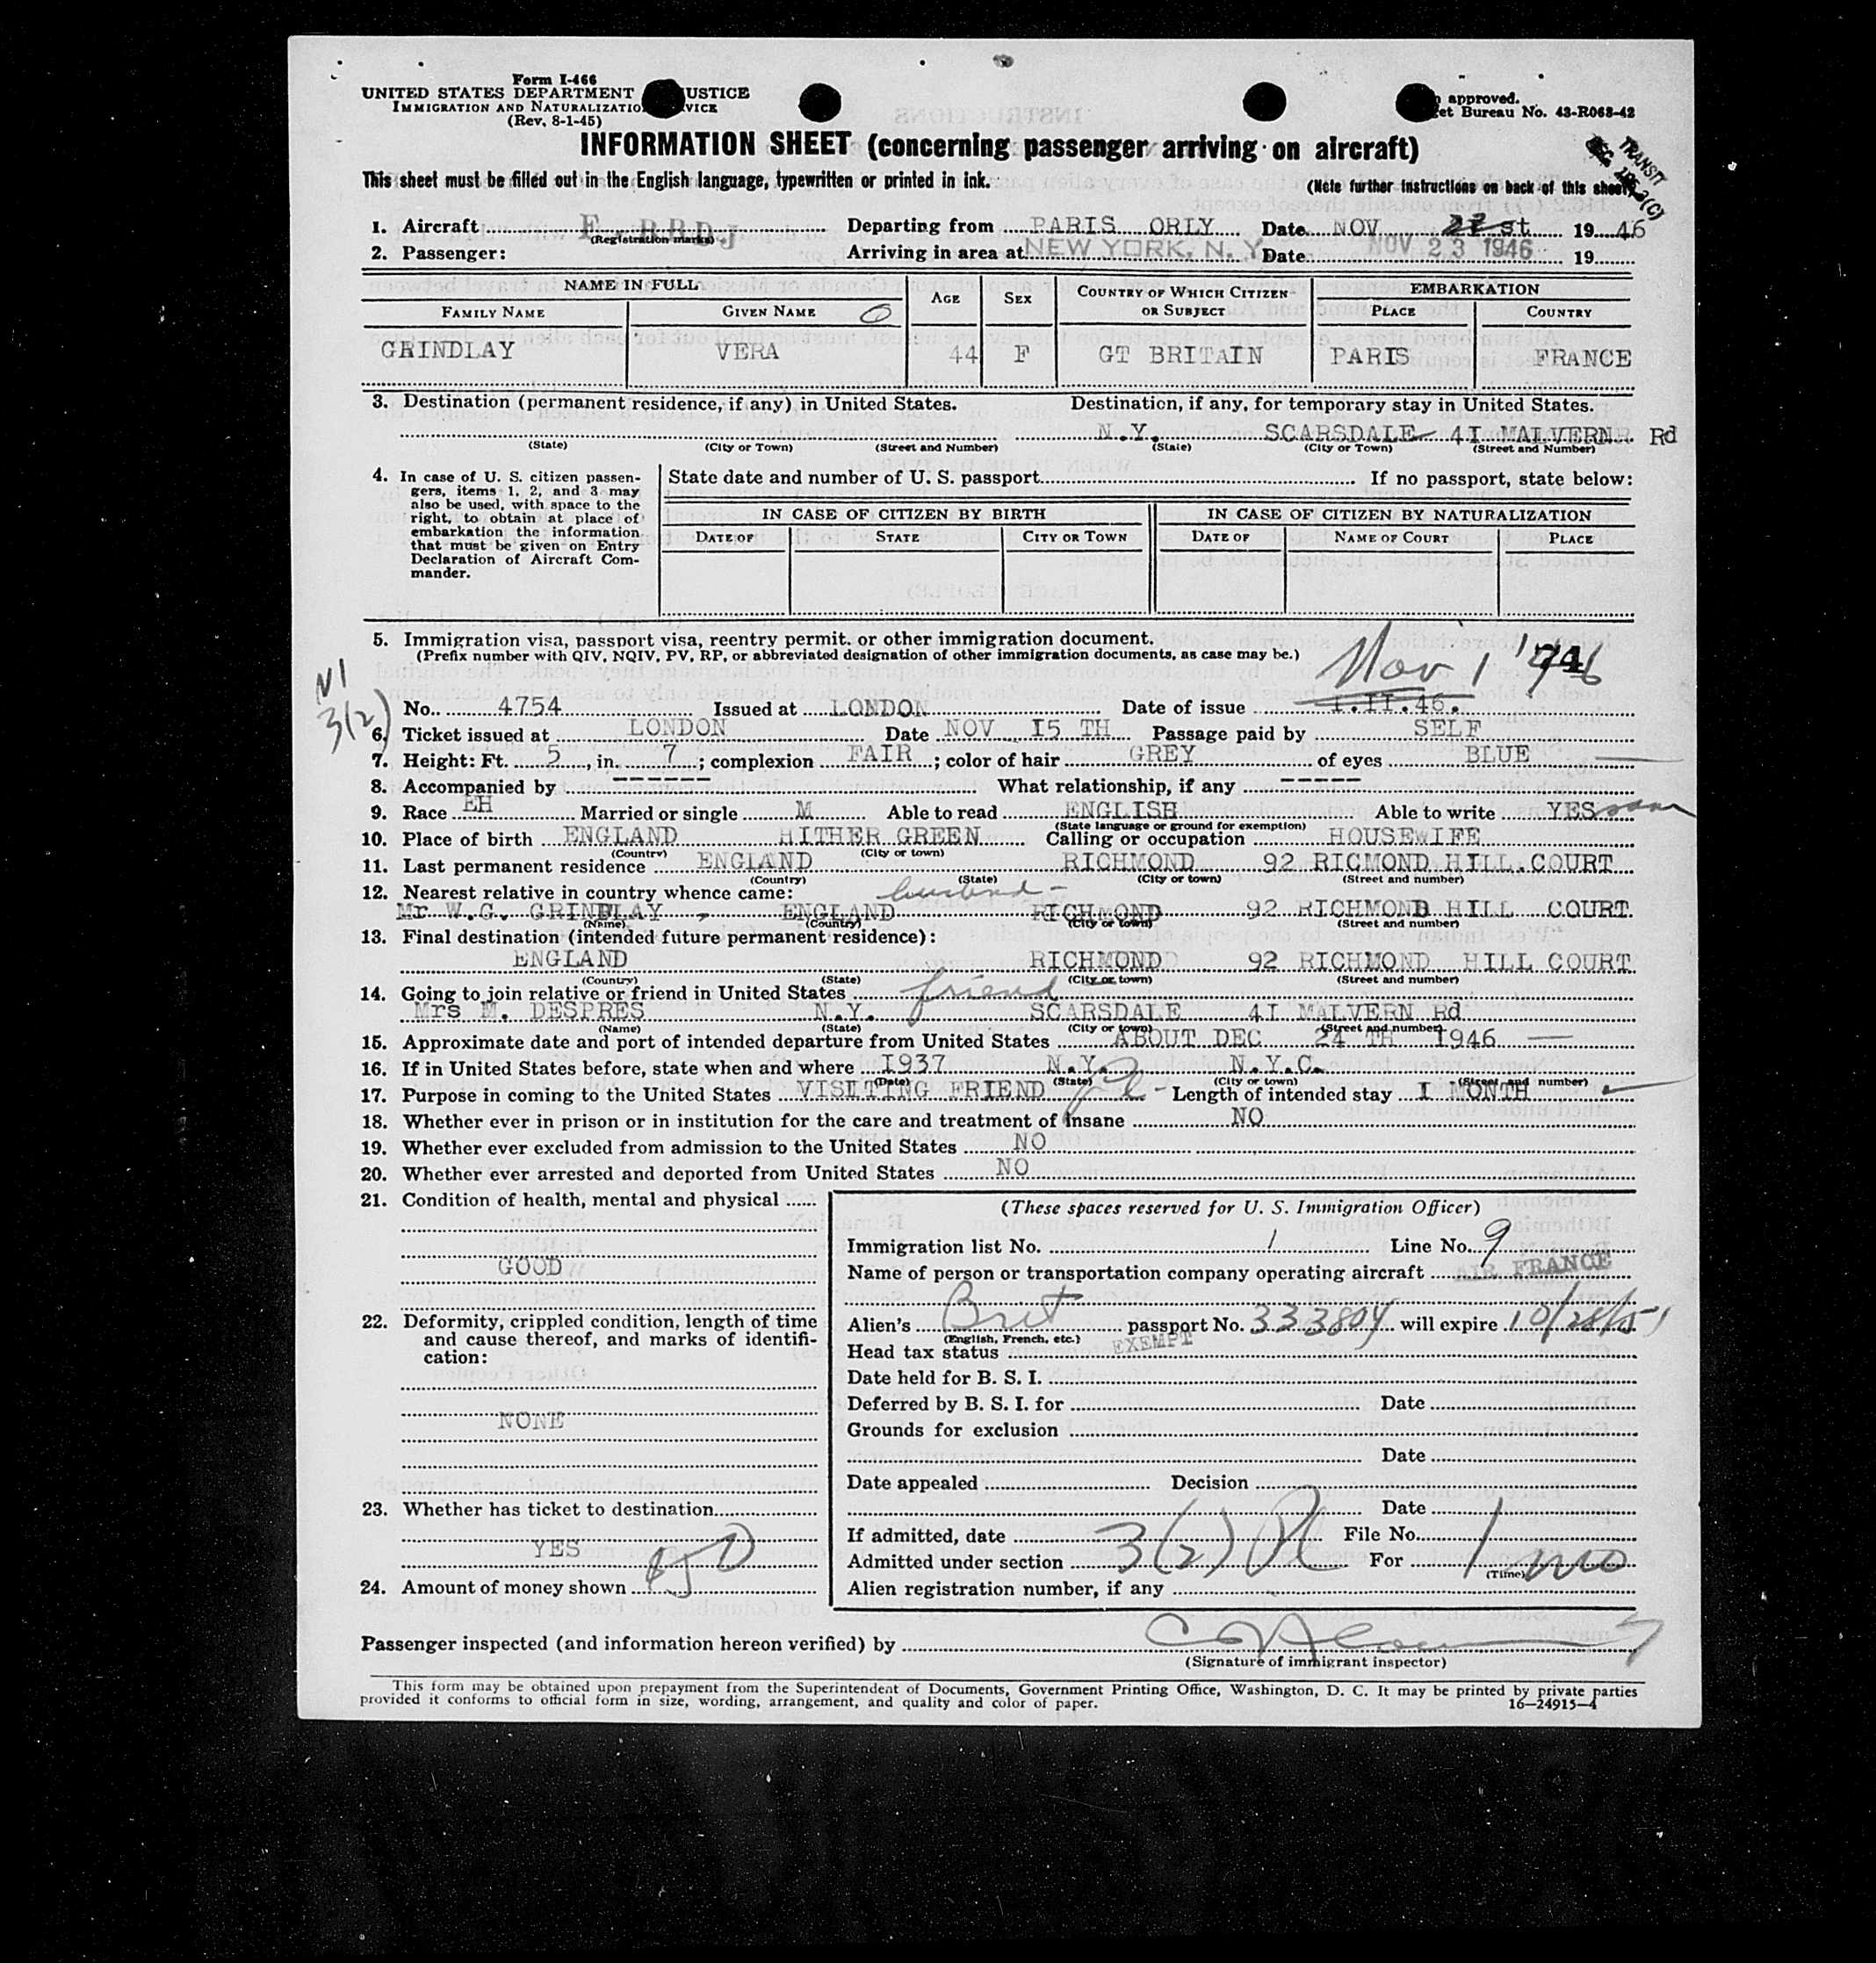 Form I-466
UNITED STATES DEPARTMENT USTICE
IMMIGRATION AND NATURALIZATIO VICE
(Rev. 8-1-45)
approved.
et Bureau No. 43-R063-42
INFORMATION SHEET (concerning passenger arriving on aircraft)
TRANSIT
This sheet must be filled out in the English language, typewritten or printed in ink. (Note further instructions on back of this sheet)
1. Aircraft F. BBDJ Departing from PARIS ORLY Date NOV st 19 46
(Registration marks)
2. Passenger: Arriving in area at NEW YORK, N. Y. Date NOV 23 1946 19
NAME IN FULL AGE SEX COUNTRY OF WHICH CITIZEN OR SUBJECT EMBARKATION
FAMILY NAME GIVEN NAME PLACE COUNTRY
GRINDLAY VERA 44 F GT BRITAIN PARIS FRANCE
3. Destination (permanent residence, if any) in United States. Destination, if any, for temporary stay in United States.
N.Y. SCARSDALE 4I MALVERN Rd
(State) (City or Town) (Street and Number) (State) (City or Town) (Street and Number)
4. In case of U. S. citizen passengers, items 1, 2, and 3 may also be used, with space to the right, to obtain at place of embarkation the information that must be given on Entry Declaration of Aircraft Commander.
State date and number of U. S. passport If no passport, state below:
IN CASE OF CITIZEN BY BIRTH IN CASE OF CITIZEN BY NATURALIZATION
DATE OF STATE CITY OR TOWN DATE OF NAME OF COURT PLACE
5. Immigration visa, passport visa, reentry permit, or other immigration document.
(Prefix number with QIV, NQIV, PV, RP, or abbreviated designation of other immigration documents, as case may be.)
Nov 1 '46
3(2)
No. 4754 Issued at LONDON Date of issue I.II.46.
6. Ticket issued at LONDON Date NOV I5 TH Passage paid by SELF
7. Height: Ft. 5, in. 7; complexion FAIR; color of hair GREY of eyes BLUE
8. Accompanied by ------- What relationship, if any -----
9. Race EH Married or single M Able to read ENGLISH Able to write YES
(State language or ground for exemption)
10. Place of birth ENGLAND HITHER GREEN Calling or occupation HOUSEWIFE
(Country) (City or town)
11. Last permanent residence ENGLAND RICHMOND 92 RICMOND HILL.COURT
(Country) (State) (City or town) (Street and number)
12. Nearest relative in country whence came: husband -
Mr W.G. GRINDLAY , ENGLAND RICHMOND 92 RICHMOND HILL COURT.
(Name) (Country) (City or town) (Street and number)
13. Final destination (intended future permanent residence):
ENGLAND RICHMOND 92 RICHMOND HILL COURT
(Country) (State) (City or town) (Street and number)
14. Going to join relative or friend in United States friend
Mrs M. DESPRES N.Y. SCARSDALE 4I MALVERN Rd
(Name) (State) (City or town) (Street and number)
15. Approximate date and port of intended departure from United States ABOUT DEC 24 TH 1946
16. If in United States before, state when and where I937 N.Y. N.Y.C.
(Date) (State) (City or town) (Street and number)
17. Purpose in coming to the United States VISITING FRIEND Length of intended stay I MONTH
18. Whether ever in prison or in institution for the care and treatment of insane NO
19. Whether ever excluded from admission to the United States NO
20. Whether ever arrested and deported from United States NO
21. Condition of health, mental and physical
GOOD
22. Deformity, crippled condition, length of time and cause thereof, and marks of identification:
NONE
23. Whether has ticket to destination
YES
24. Amount of money shown
(These spaces reserved for U. S. Immigration Officer)
Immigration list No. 1 Line No. 9
Name of person or transportation company operating aircraft AIR FRANCE
Alien's Brit passport No. 333804 will expire 10/28/51
(English, French, etc.)
Head tax status EXEMPT
Date held for B. S. I.
Deferred by B. S. I. for Date
Grounds for exclusion
Date
Date appealed Decision
Date
If admitted, date File No.
Admitted under section 3(2) For 1 mo
(Time)
Alien registration number, if any
Passenger inspected (and information hereon verified) by
(Signature of immigrant inspector)
This form may be obtained upon prepayment from the Superintendent of Documents, Government Printing Office, Washington, D. C. It may be printed by private parties
provided it conforms to official form in size, wording, arrangement, and quality and color of paper. 16—24915-4